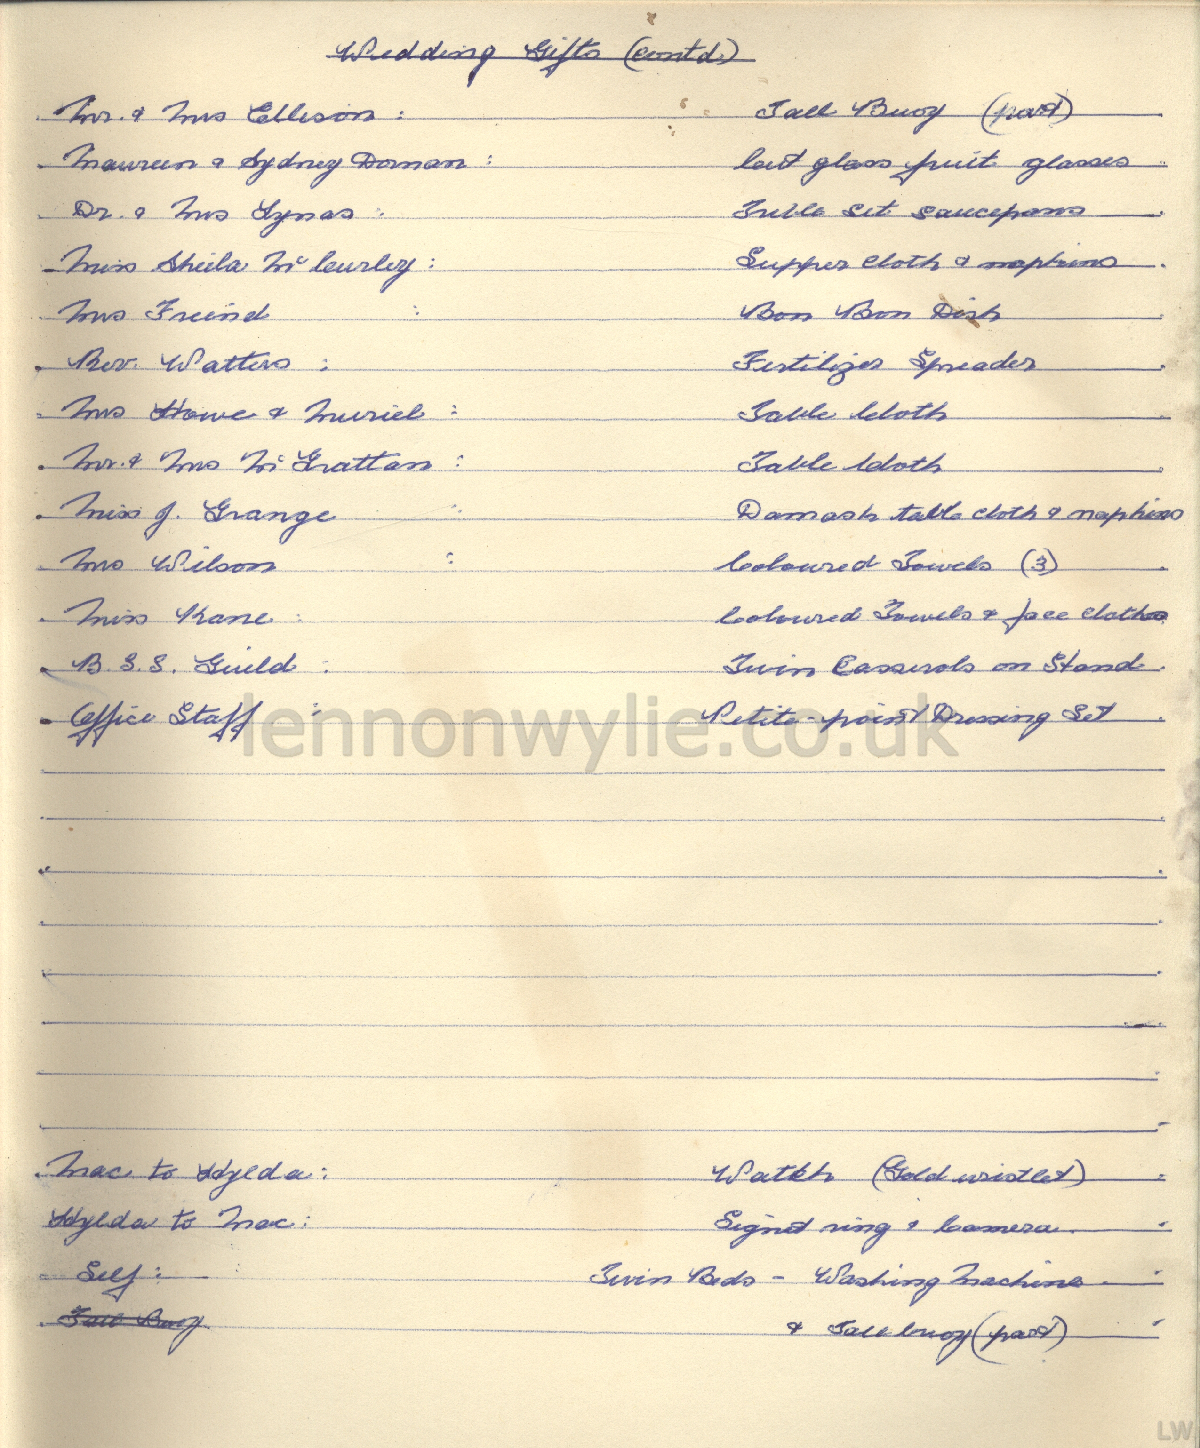 Wedding Gifts (contd.)
Mr. & Mrs Ellison : Tall Buoy (part)
Maureen & Sydney Dornan : Cut glass fruit glasses
Dr. & Mrs Lynas : Treble Set Saucepans
Miss Sheila McCurley : Supper Cloth & napkins
Mrs Freind : Bon Bon Dish
Rev. Watters : Fertilizer Spreader
Mrs Howe & Muriel : Table Cloth
Mr. & Mrs McGrattan : Table Cloth
Miss J. Grange : Damask table cloth & napkins
Mrs Wilson : Coloured Towels (3)
Miss Kane : Coloured Towels & face cloths
B.S.S. Guild : Twin Casserols on Stand
Office Staff : Petite-point Dressing Set
lennonwylie.co.uk
Mac to Hylda : Watch (Gold wristlet)
Hylda to Mac : Signet ring & Camera
Self : Twin Beds - Washing Machine
Tall Buoy & Tall buoy (part)
LW